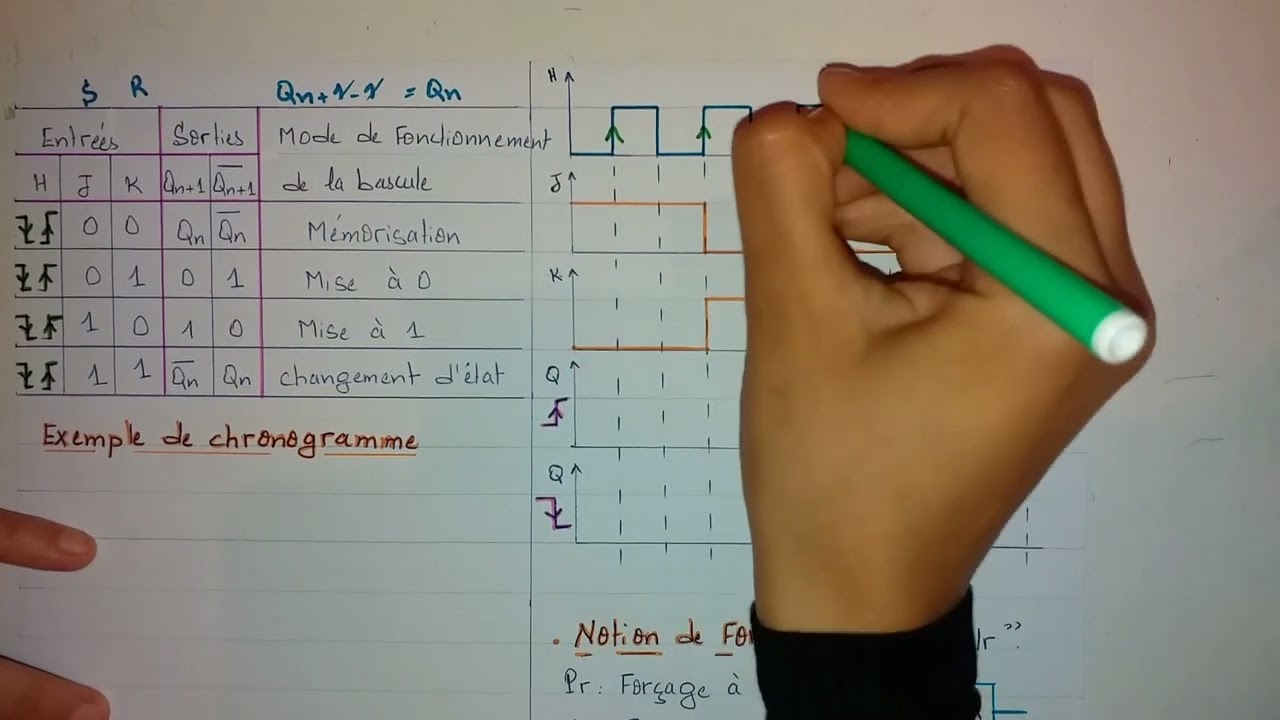 S R Qn+1-1 = Qn
Entrées Sorties Mode de Fonctionnement
H J K Qn+1 Q̅n+1 de la bascule
0 0 Qn Q̅n Mémorisation
0 1 0 1 Mise à 0
1 0 1 0 Mise à 1
1 1 Q̅n Qn changement d'état
Exemple de chronogramme
H
J
K
Q
Q
. Notion de
Pr: Forçage à